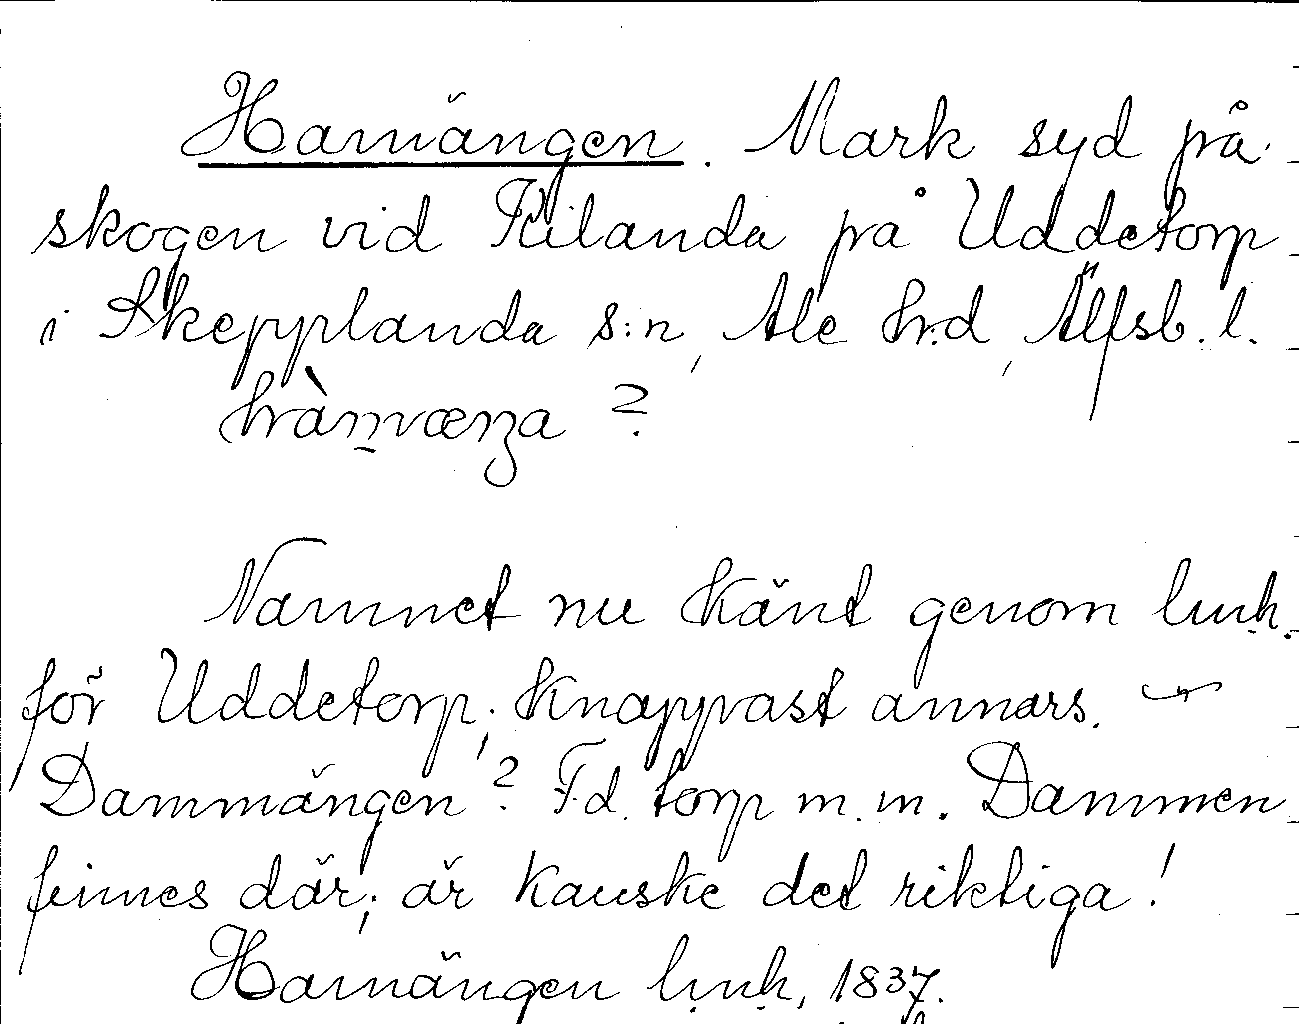 Hamängen. Mark syd på
skogen vid Kilanda på Uddetorp
i Skepplanda s:n, Ale hrd, Älfsb. l.
?
Namnet nu känt genom lmh.
för Uddetorp; knappast annars. —
Dammängen? F.d. torp m.m. Dammen
finnes där; är kanske det riktiga!
Hamängen lmh, 1837.